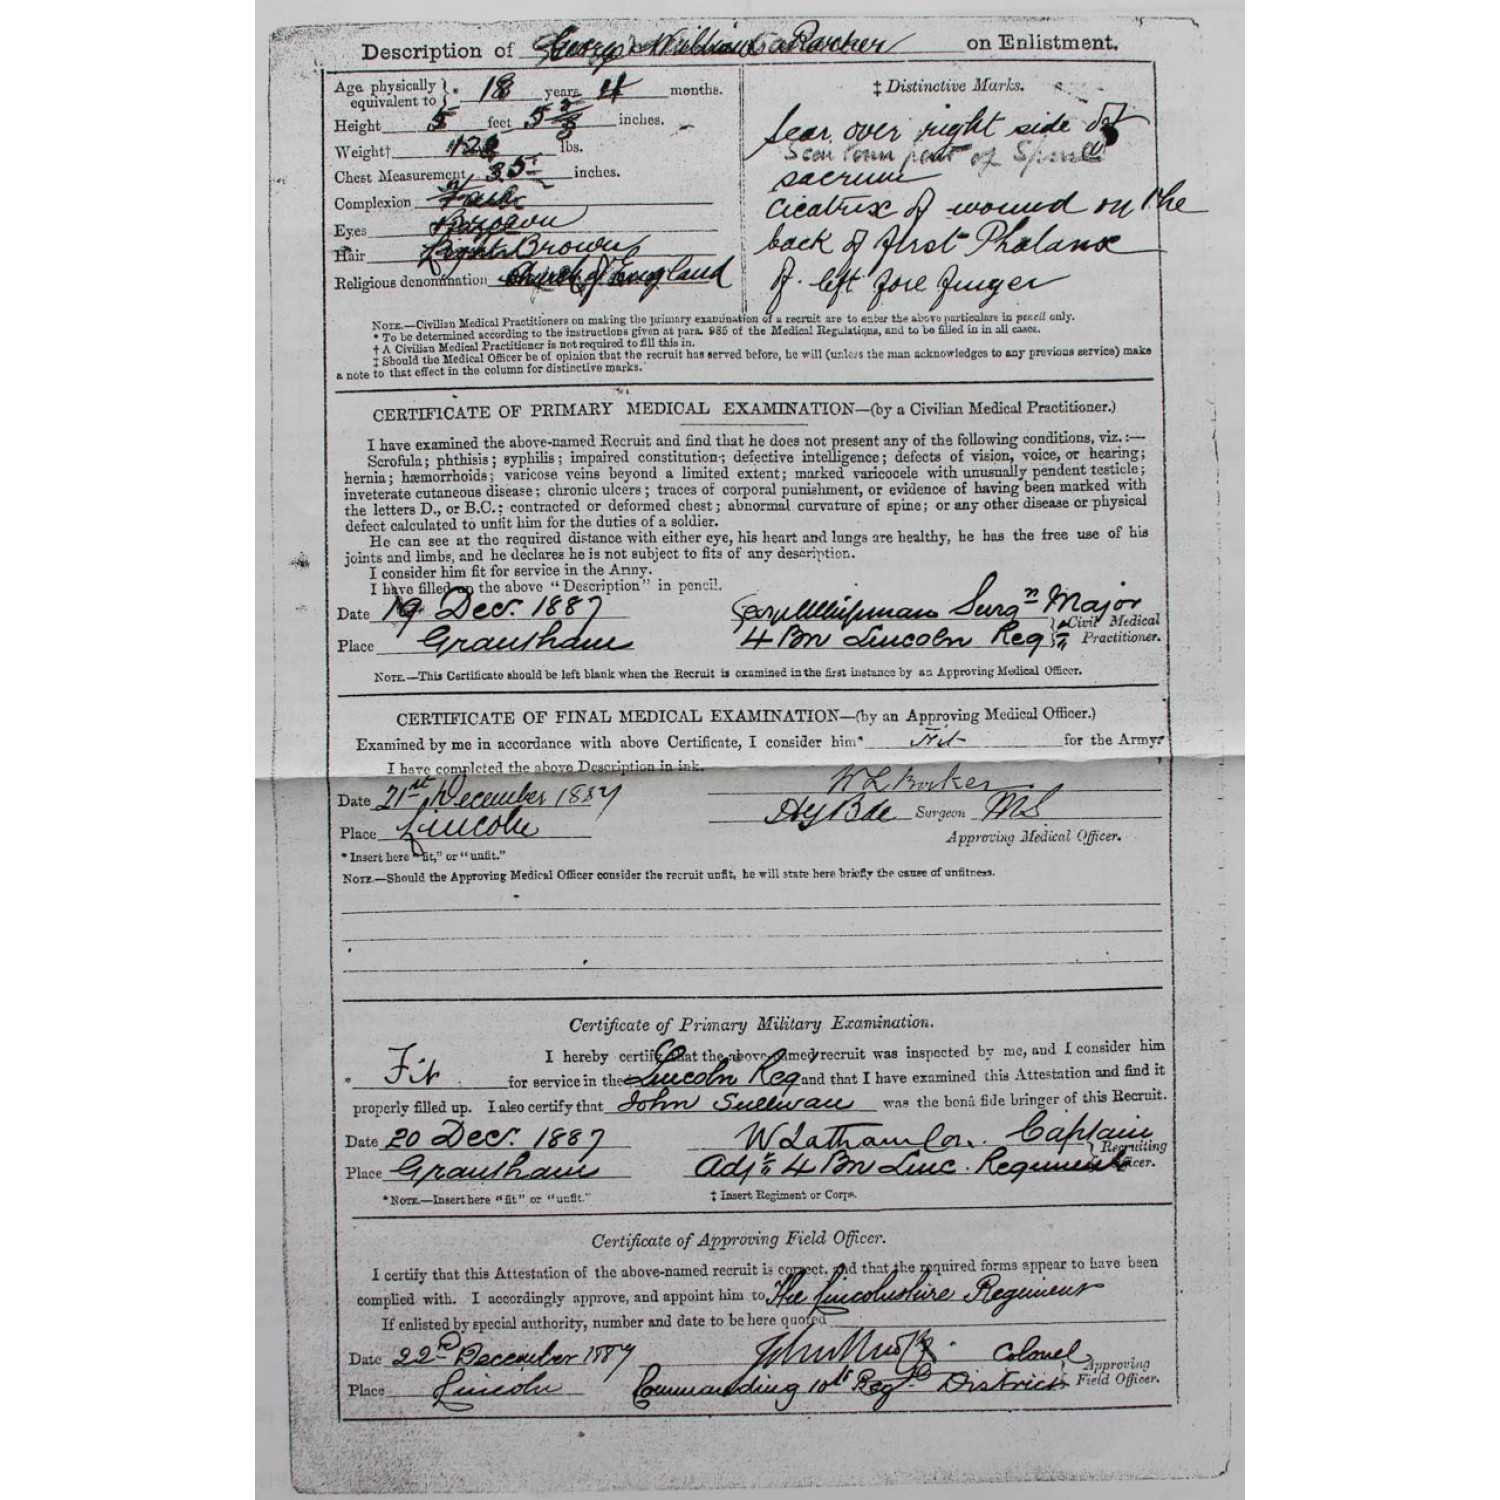 Description of George William Parker on Enlistment.
Age physically equivalent to }* 18 years 4 months.
Height 5 feet 5 inches.
Weight† lbs.
Chest Measurement 35 inches.
Complexion
Eyes Brown
Hair Light Brown
Religious denomination Church of England
‡ Distinctive Marks.
Scar over right side of
Scar lower part of Spine
sacrum
Cicatrix of wound on the
back of first Phalanx
of left fore finger
NOTE.—Civilian Medical Practitioners on making the primary examination of a recruit are to enter the above particulars in pencil only.
* To be determined according to the instructions given at para. 985 of the Medical Regulations, and to be filled in in all cases.
† A Civilian Medical Practitioner is not required to fill this in.
‡ Should the Medical Officer be of opinion that the recruit has served before, he will (unless the man acknowledges to any previous service) make
a note to that effect in the column for distinctive marks.
CERTIFICATE OF PRIMARY MEDICAL EXAMINATION—(by a Civilian Medical Practitioner.)
I have examined the above-named Recruit and find that he does not present any of the following conditions, viz.:—
Scrofula; phthisis; syphilis; impaired constitution; defective intelligence; defects of vision, voice, or hearing;
hernia; hæmorrhoids; varicose veins beyond a limited extent; marked varicocele with unusually pendent testicle;
inveterate cutaneous disease; chronic ulcers; traces of corporal punishment, or evidence of having been marked with
the letters D., or B.C.; contracted or deformed chest; abnormal curvature of spine; or any other disease or physical
defect calculated to unfit him for the duties of a soldier.
He can see at the required distance with either eye, his heart and lungs are healthy, he has the free use of his
joints and limbs, and he declares he is not subject to fits of any description.
I consider him fit for service in the Army.
I have filled up the above "Description" in pencil.
Date 19 Dec. 1887 Surgn Major
Place Grantham 4 Bn Lincoln Reg } Civil Medical Practitioner.
NOTE.—This Certificate should be left blank when the Recruit is examined in the first instance by an Approving Medical Officer.
CERTIFICATE OF FINAL MEDICAL EXAMINATION—(by an Approving Medical Officer.)
Examined by me in accordance with above Certificate, I consider him* Fit for the Army.
I have completed the above Description in ink.
Date 21st December 1887
Place Lincoln Surgeon MS
Approving Medical Officer.
* Insert here "fit," or "unfit."
NOTE.—Should the Approving Medical Officer consider the recruit unfit, he will state here briefly the cause of unfitness.
Certificate of Primary Military Examination.
I hereby certify that the above-named recruit was inspected by me, and I consider him
* Fit for service in the Lincoln Reg and that I have examined this Attestation and find it
properly filled up. I also certify that John Sullivan was the bonâ fide bringer of this Recruit.
Date 20 Dec. 1887 Captain
Place Grantham Adjt 4 Bn Linc. Regiment } Recruiting Officer.
*NOTE.—Insert here "fit" or "unfit." ‡ Insert Regiment or Corps.
Certificate of Approving Field Officer.
I certify that this Attestation of the above-named recruit is correct, and that the required forms appear to have been
complied with. I accordingly approve, and appoint him to The Lincolnshire Regiment
If enlisted by special authority, number and date to be here quoted
Date 22nd December 1887 Colonel
Place Lincoln Commanding 10th Regtl District } Approving Field Officer.